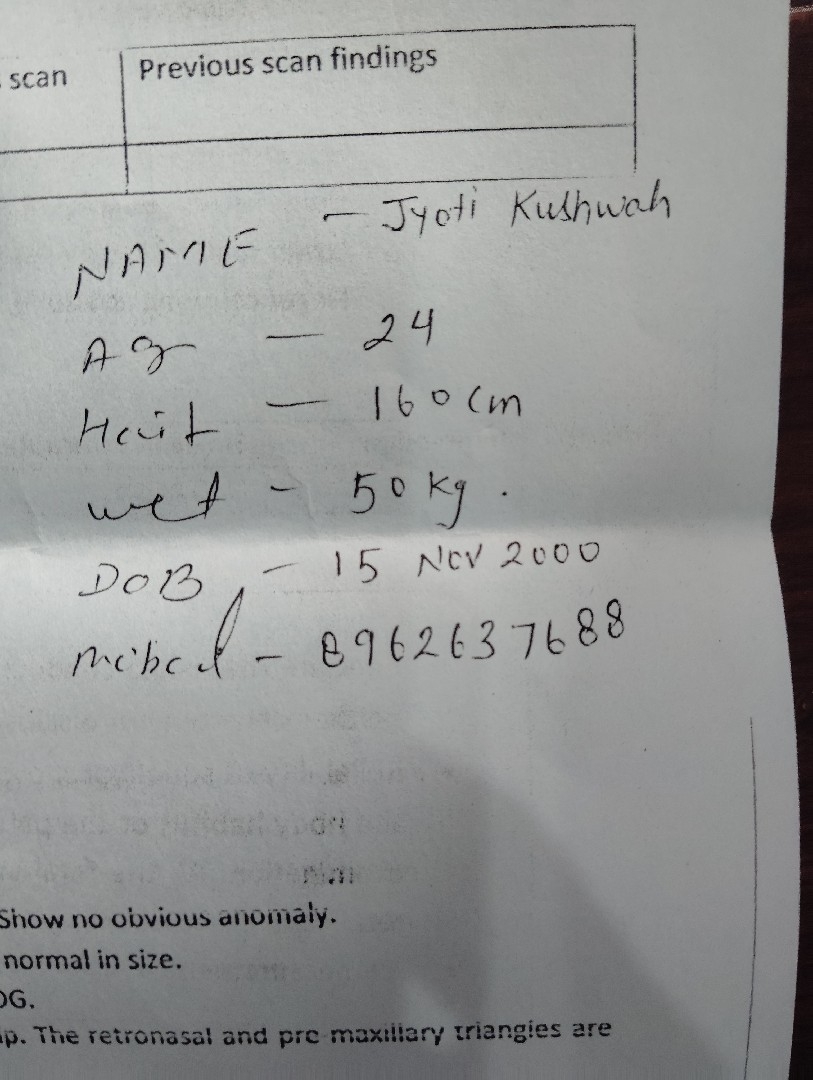 scan
Previous scan findings
NAME - Jyoti Kushwah
Ag - 24
Heit - 160 cm
wet - 50 kg.
DOB - 15 Nov 2000
mobel - 8962637688
Show no obvious anomaly.
normal in size.
OG.
The retronasal and pre maxillary triangles are